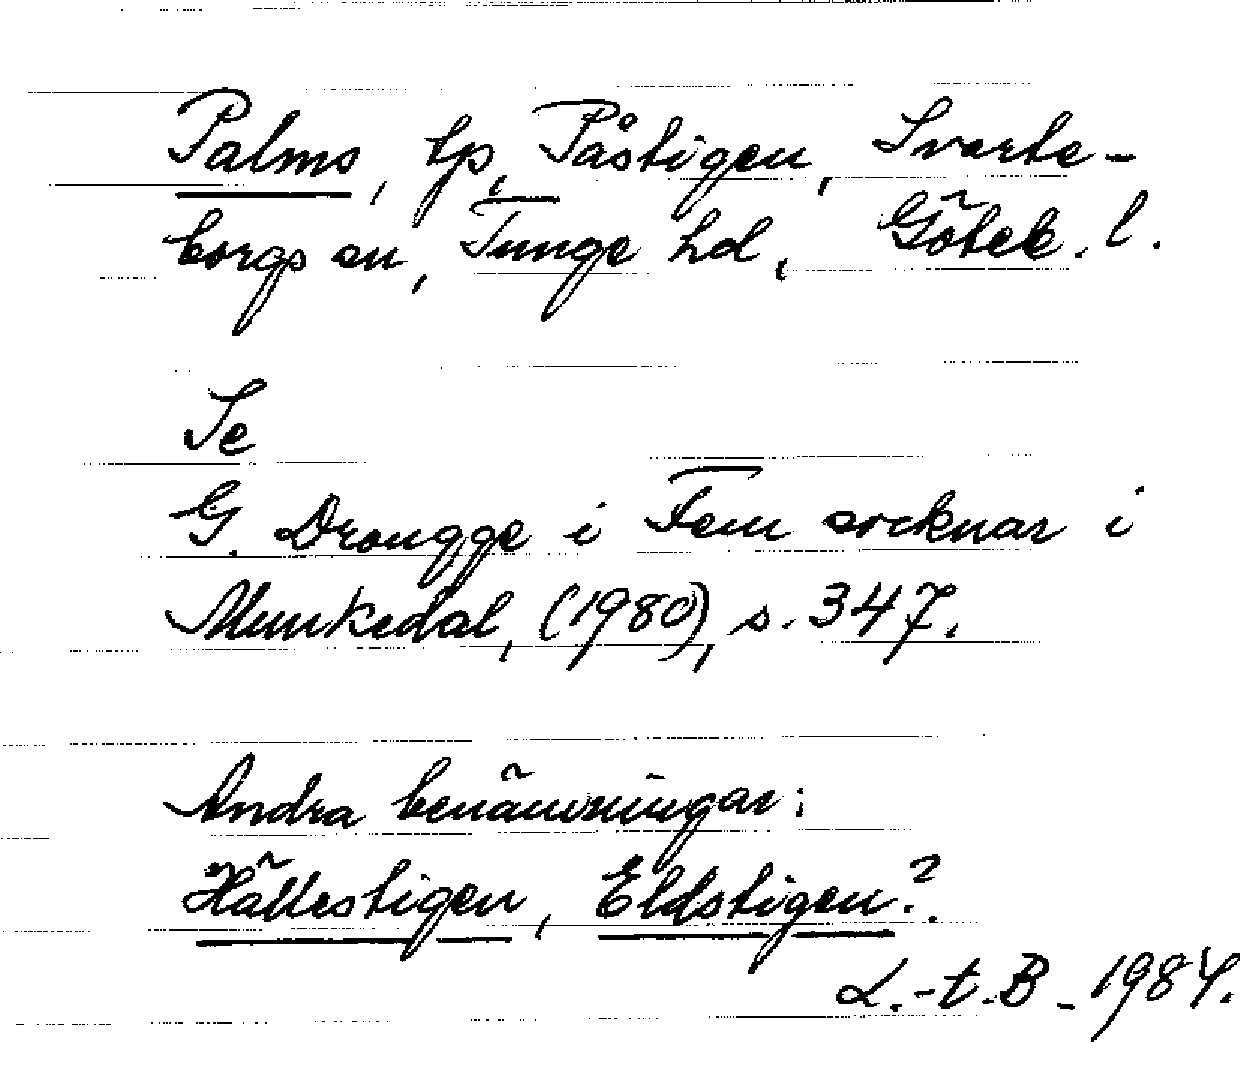 Palms, tp, Påstigen, Svarte-
borgs sn, Tunge hd, Göteb. l.
Se
G. Drougge i Fem socknar i
Munkedal, (1980), s. 347.
Andra benämningar:
Hällestigen, Eldstigen?.
L.-t. B - 1984.